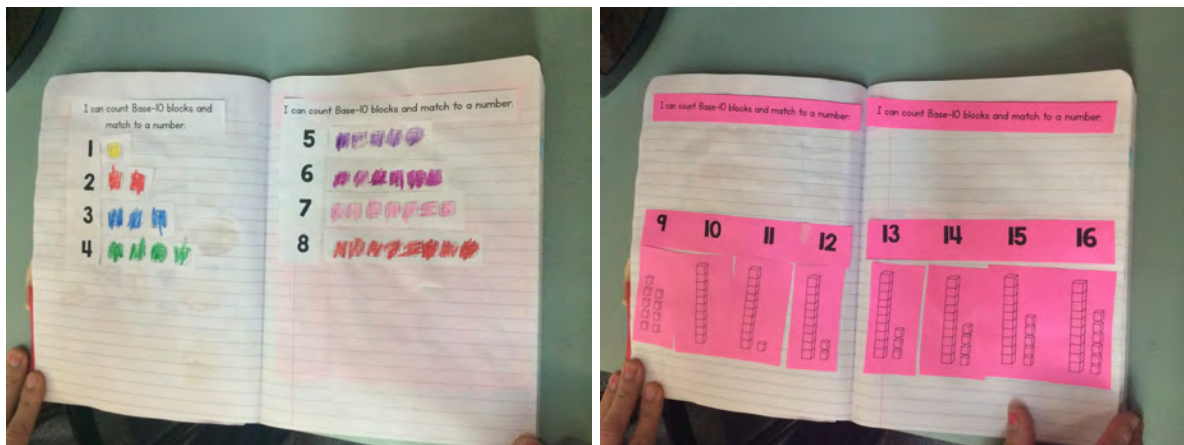 I can count Base-10 blocks and
match to a number.
1
2
3
4
I can count Base-10 blocks and match to a number.
5
6
7
8
I can count Base-10 blocks and match to a number.
9 10 11 12
I can count Base-10 blocks and match to a number.
13 14 15 16